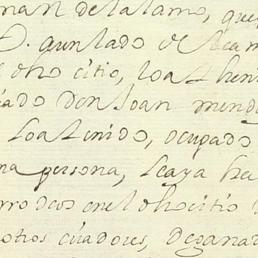 nan de la lamo, que
D. quntado de
dho citio, lo at
don Joan mend
lo atenido, ocupado
na persona, le aya
rro deos en el dho citio
otros criadores, de gana